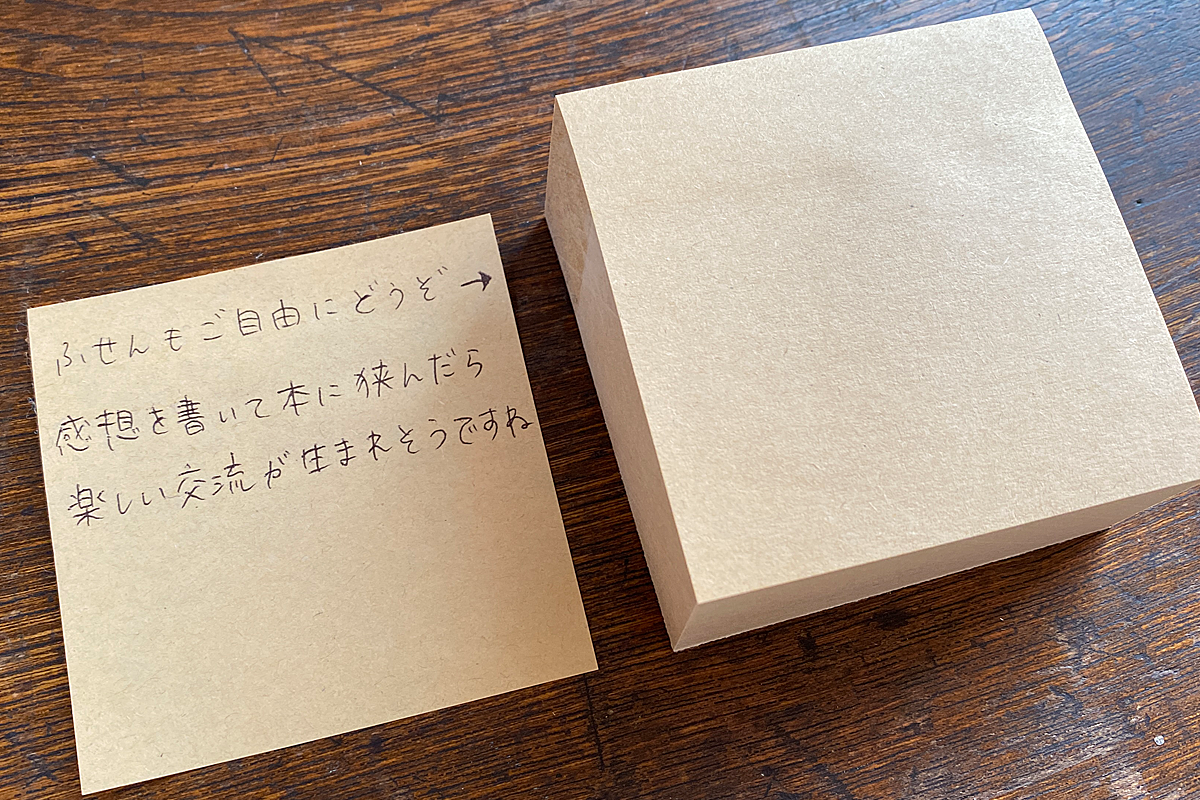 ふせんもご自由にどうぞ→
感想を書いて本に狭んだら
楽しい交流が生まれそうですね